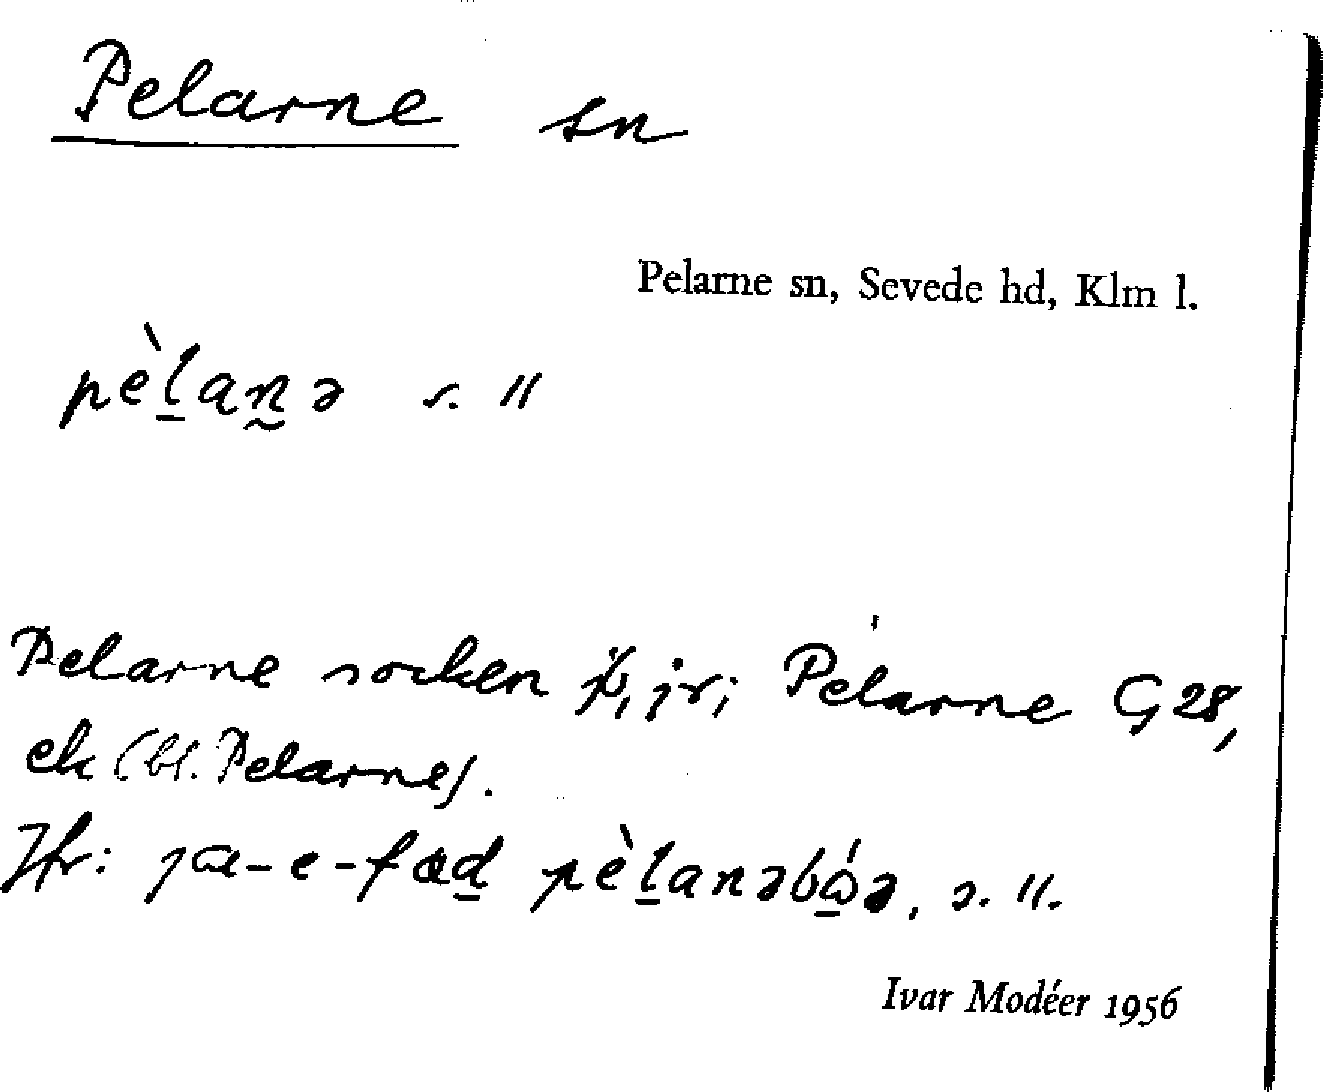 Pelarne sn
Pelarne sn, Sevede hd, Klm l.
pèlanə s. "
Pelarne socken jb, jr; Pelarne G28,
ek (bl. Pelarne).
Jfr: ja-e-fød pèlanəbóə, s. ".
Ivar Modéer 1956